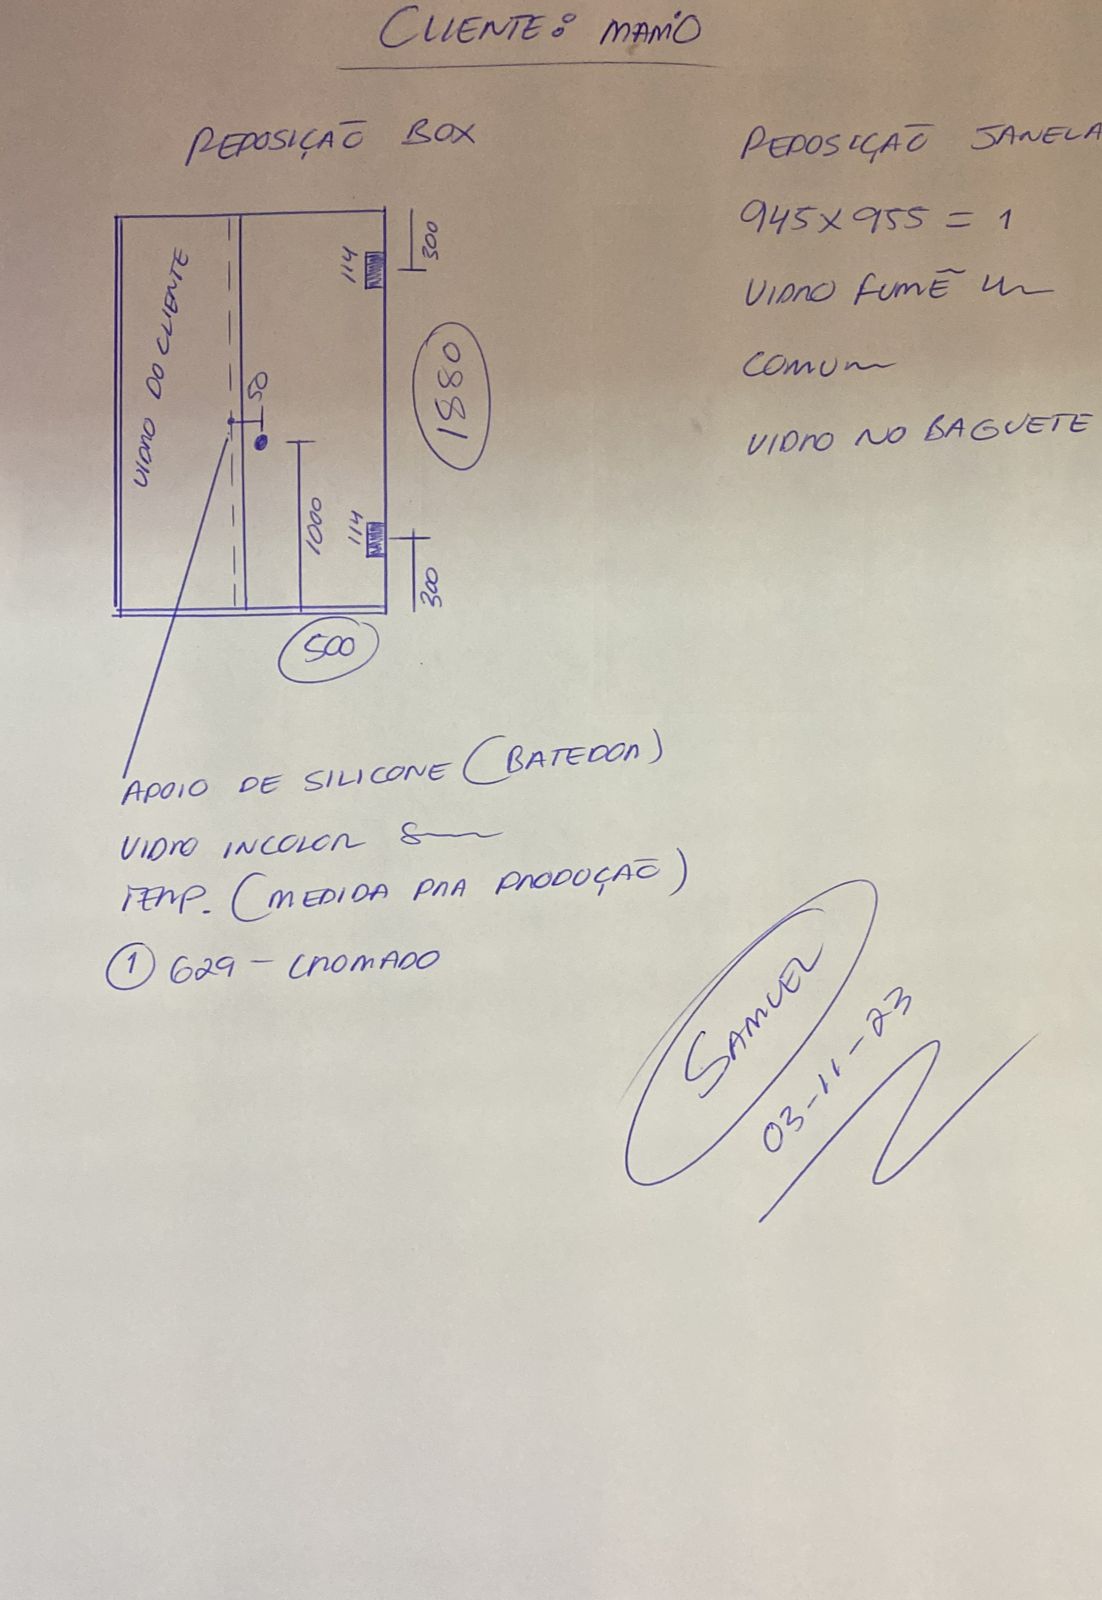 CLIENTE: MARIO
REPOSIÇÃO BOX
VIDRO DO CLIENTE
114
300
50
1880
1000
114
300
500
APOIO DE SILICONE (BATEDOR)
VIDRO INCOLOR 8
TEMP. (MEDIDA PRA PRODUÇÃO)
1 629 - CROMADO
REPOSIÇÃO JANELA
945 X 955 = 1
VIDRO FUMÊ
COMUM
VIDRO NO BAGUETE
SAMUEL
03-11-23